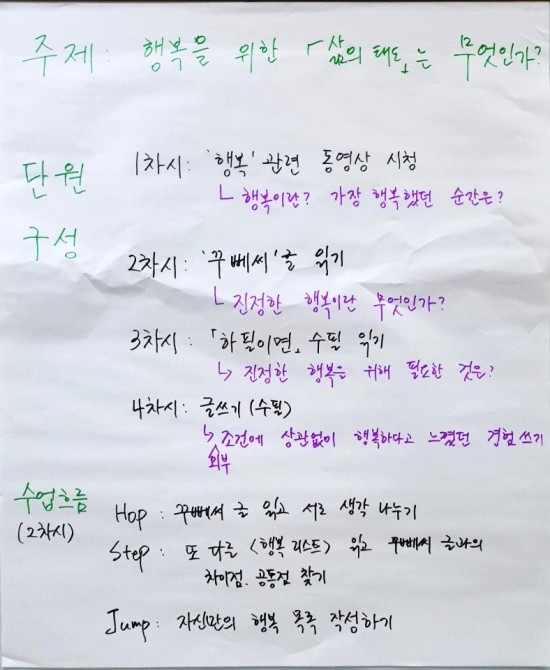 주제: 행복을 위한 「삶의 태도」는 무엇인가?
단원 구성
1차시: '행복' 관련 동영상 시청
ㄴ 행복이란? 가장 행복했던 순간은?
2차시: '꾸뻬씨' 글 읽기
ㄴ 진정한 행복이란 무엇인가?
3차시: 「하필이면」 수필 읽기
↳ 진정한 행복을 위해 필요한 것은?
4차시: 글쓰기 (수필)
↳ 외부 조건에 상관없이 행복하다고 느꼈던 경험 쓰기
수업흐름
(2차시)
Hop: 꾸뻬씨 글 읽고 서로 생각 나누기
Step: 또 다른 <행복 리스트> 읽고 꾸뻬씨 글과의
차이점. 공통점 찾기
Jump: 자신만의 행복 목록 작성하기